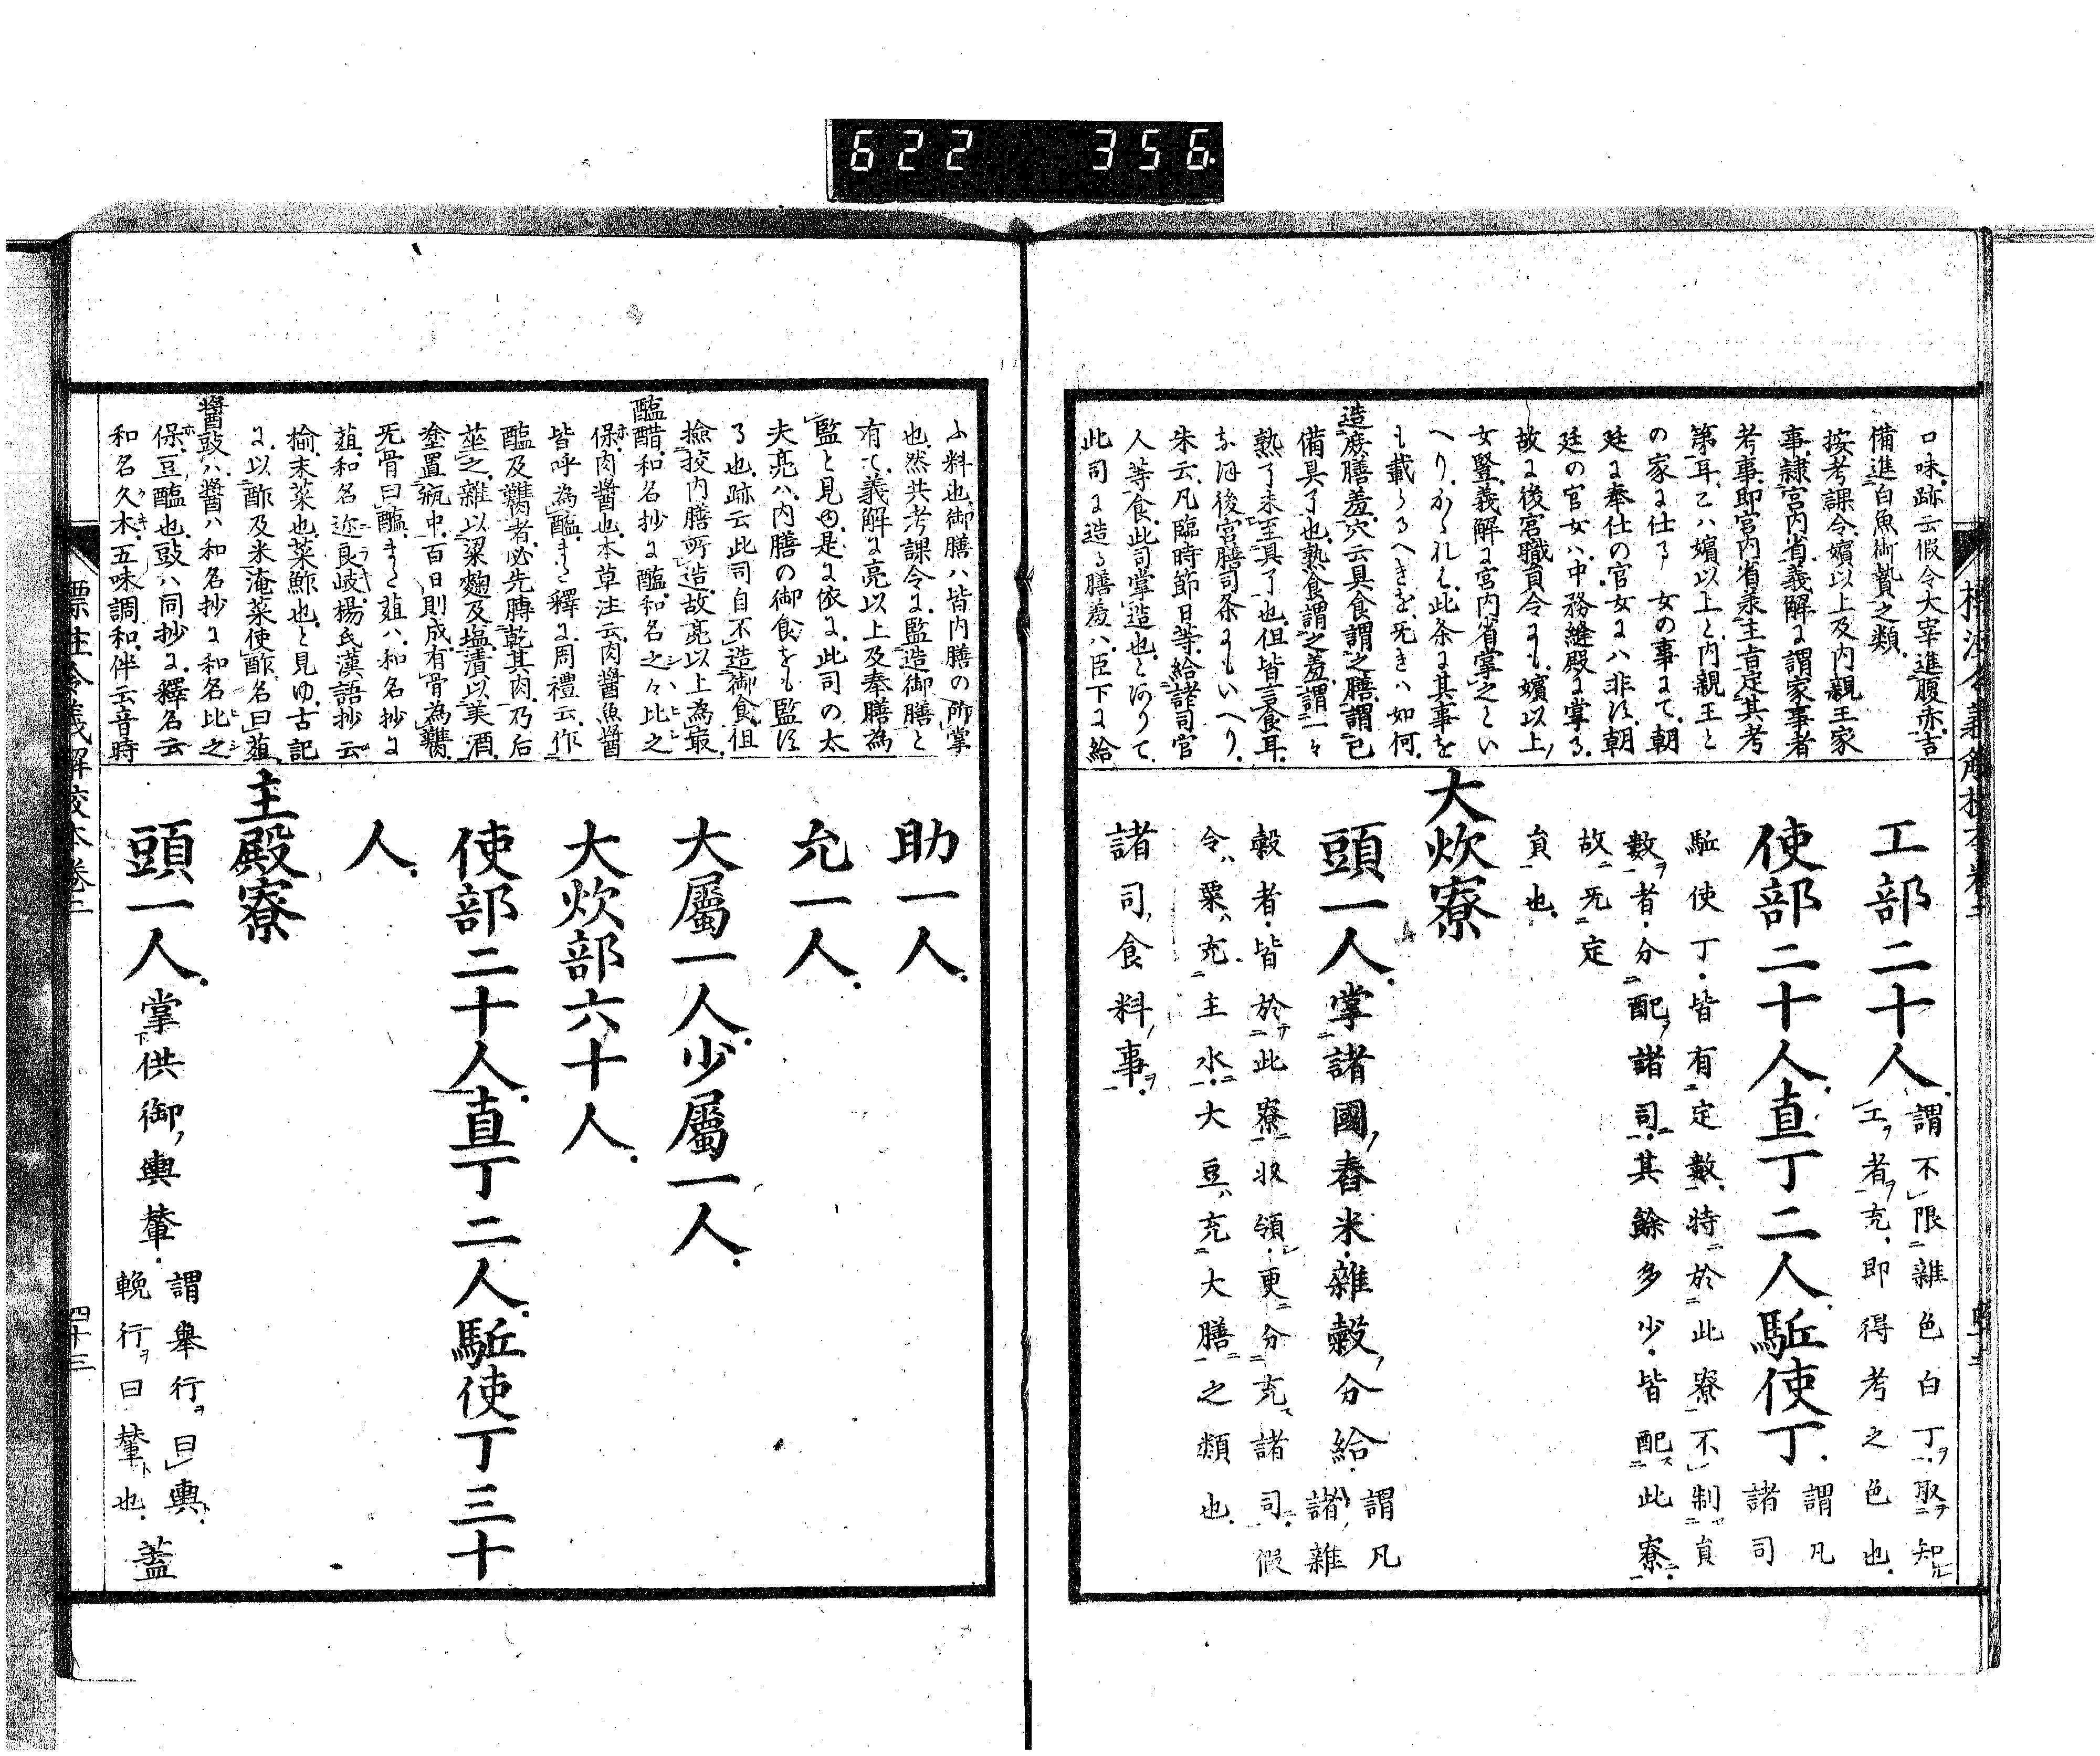 622 356
口味跡云假令大宰進腹赤吉
備進白魚御贄之類
按考課令嬪以上及内親王家
事隷宮内省義解に謂家事者
考事即宮内省录主吉定其考
第耳乙ハ嬪以上と内親王と
の家に仕る女の事にて朝
廷に奉仕の官女にハ非ず朝
廷の官女ハ中務縫殿に掌る
故に後宮職員令にも嬪以上ノ
女豎義解に宮内省掌之とい
へりかゝれば此条に其事を
も載らるへきを旡きハ如何
造庶膳羞穴云具食謂之膳謂已
備具了也熟食謂之羞謂一々
熟了未至具了也但皆言食耳
なほ後宮膳司条にもいへり
朱云凡臨時節日等給諸司官
人等食此司掌造也とありて
此司に造る膳羞ハ臣下に給
工部二十人謂不限雜色白丁ヲ取知
工ヲ者ヲ充即得考之色也
使部二十人直丁二人駈使丁謂凡
諸司
駈使丁皆有定數特於此寮不制員
數ヲ者分配ヲ諸司其餘多少皆配此寮
故旡定
員也
大炊寮
頭一人掌諸國ノ舂米雜穀ノ分給謂凡
諸ノ雜
穀者皆於テ此寮收領更分充諸司假
令ハ粟ハ充主水大豆ハ充大膳之類也
諸司ノ食料ノ事ヲ
ふ料也御膳ハ皆内膳の所掌
也然共考課令に監造御膳と
有て義解に亮以上及奉膳為
監と見ゆ是に依に此司の太
夫亮ハ内膳の御食をも監ず
る也跡云此司自不造御食但
撿挍内膳所造故亮以上為最
醢醋和名抄に醢和名之々比之
保肉醬也本草注云肉醬魚醬
皆呼為醢また釋に周禮云作
醢及臡者必先膊乾其肉乃后
莝之雜以粱麴及塩漬以美酒
塗置瓶中百日則成有骨為臡
旡骨曰醢また葅ハ和名抄に
葅和名迩良岐楊氏漢語抄云
楡末菜也菜鮓也と見ゆ古記
に以酢及米淹菜使酢名曰葅
醬豉ハ醬ハ和名抄に和名比之
保豆醢也豉ハ同抄に釋名云
和名久木五味調和伴云音時
助一人
允一人
大屬一人少屬一人
大炊部六十人
使部二十人直丁二人駈使丁三十
人
主殿寮
頭一人掌供御ノ輿輦謂舉行ヲ曰輿ト
輓行ヲ曰輦ト也蓋
標注令義解校本卷二
四十三